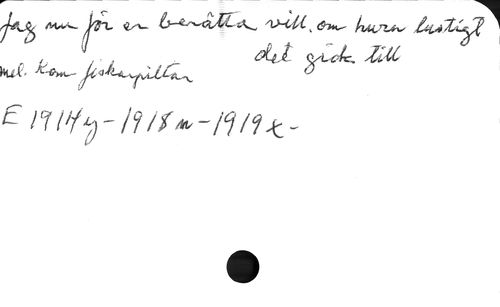 Jag nu för er berätta vill, om huru lustigt
det gick till
mel. Kom fiskarpiltar
E 1914 y - 1918 n - 1919 x -